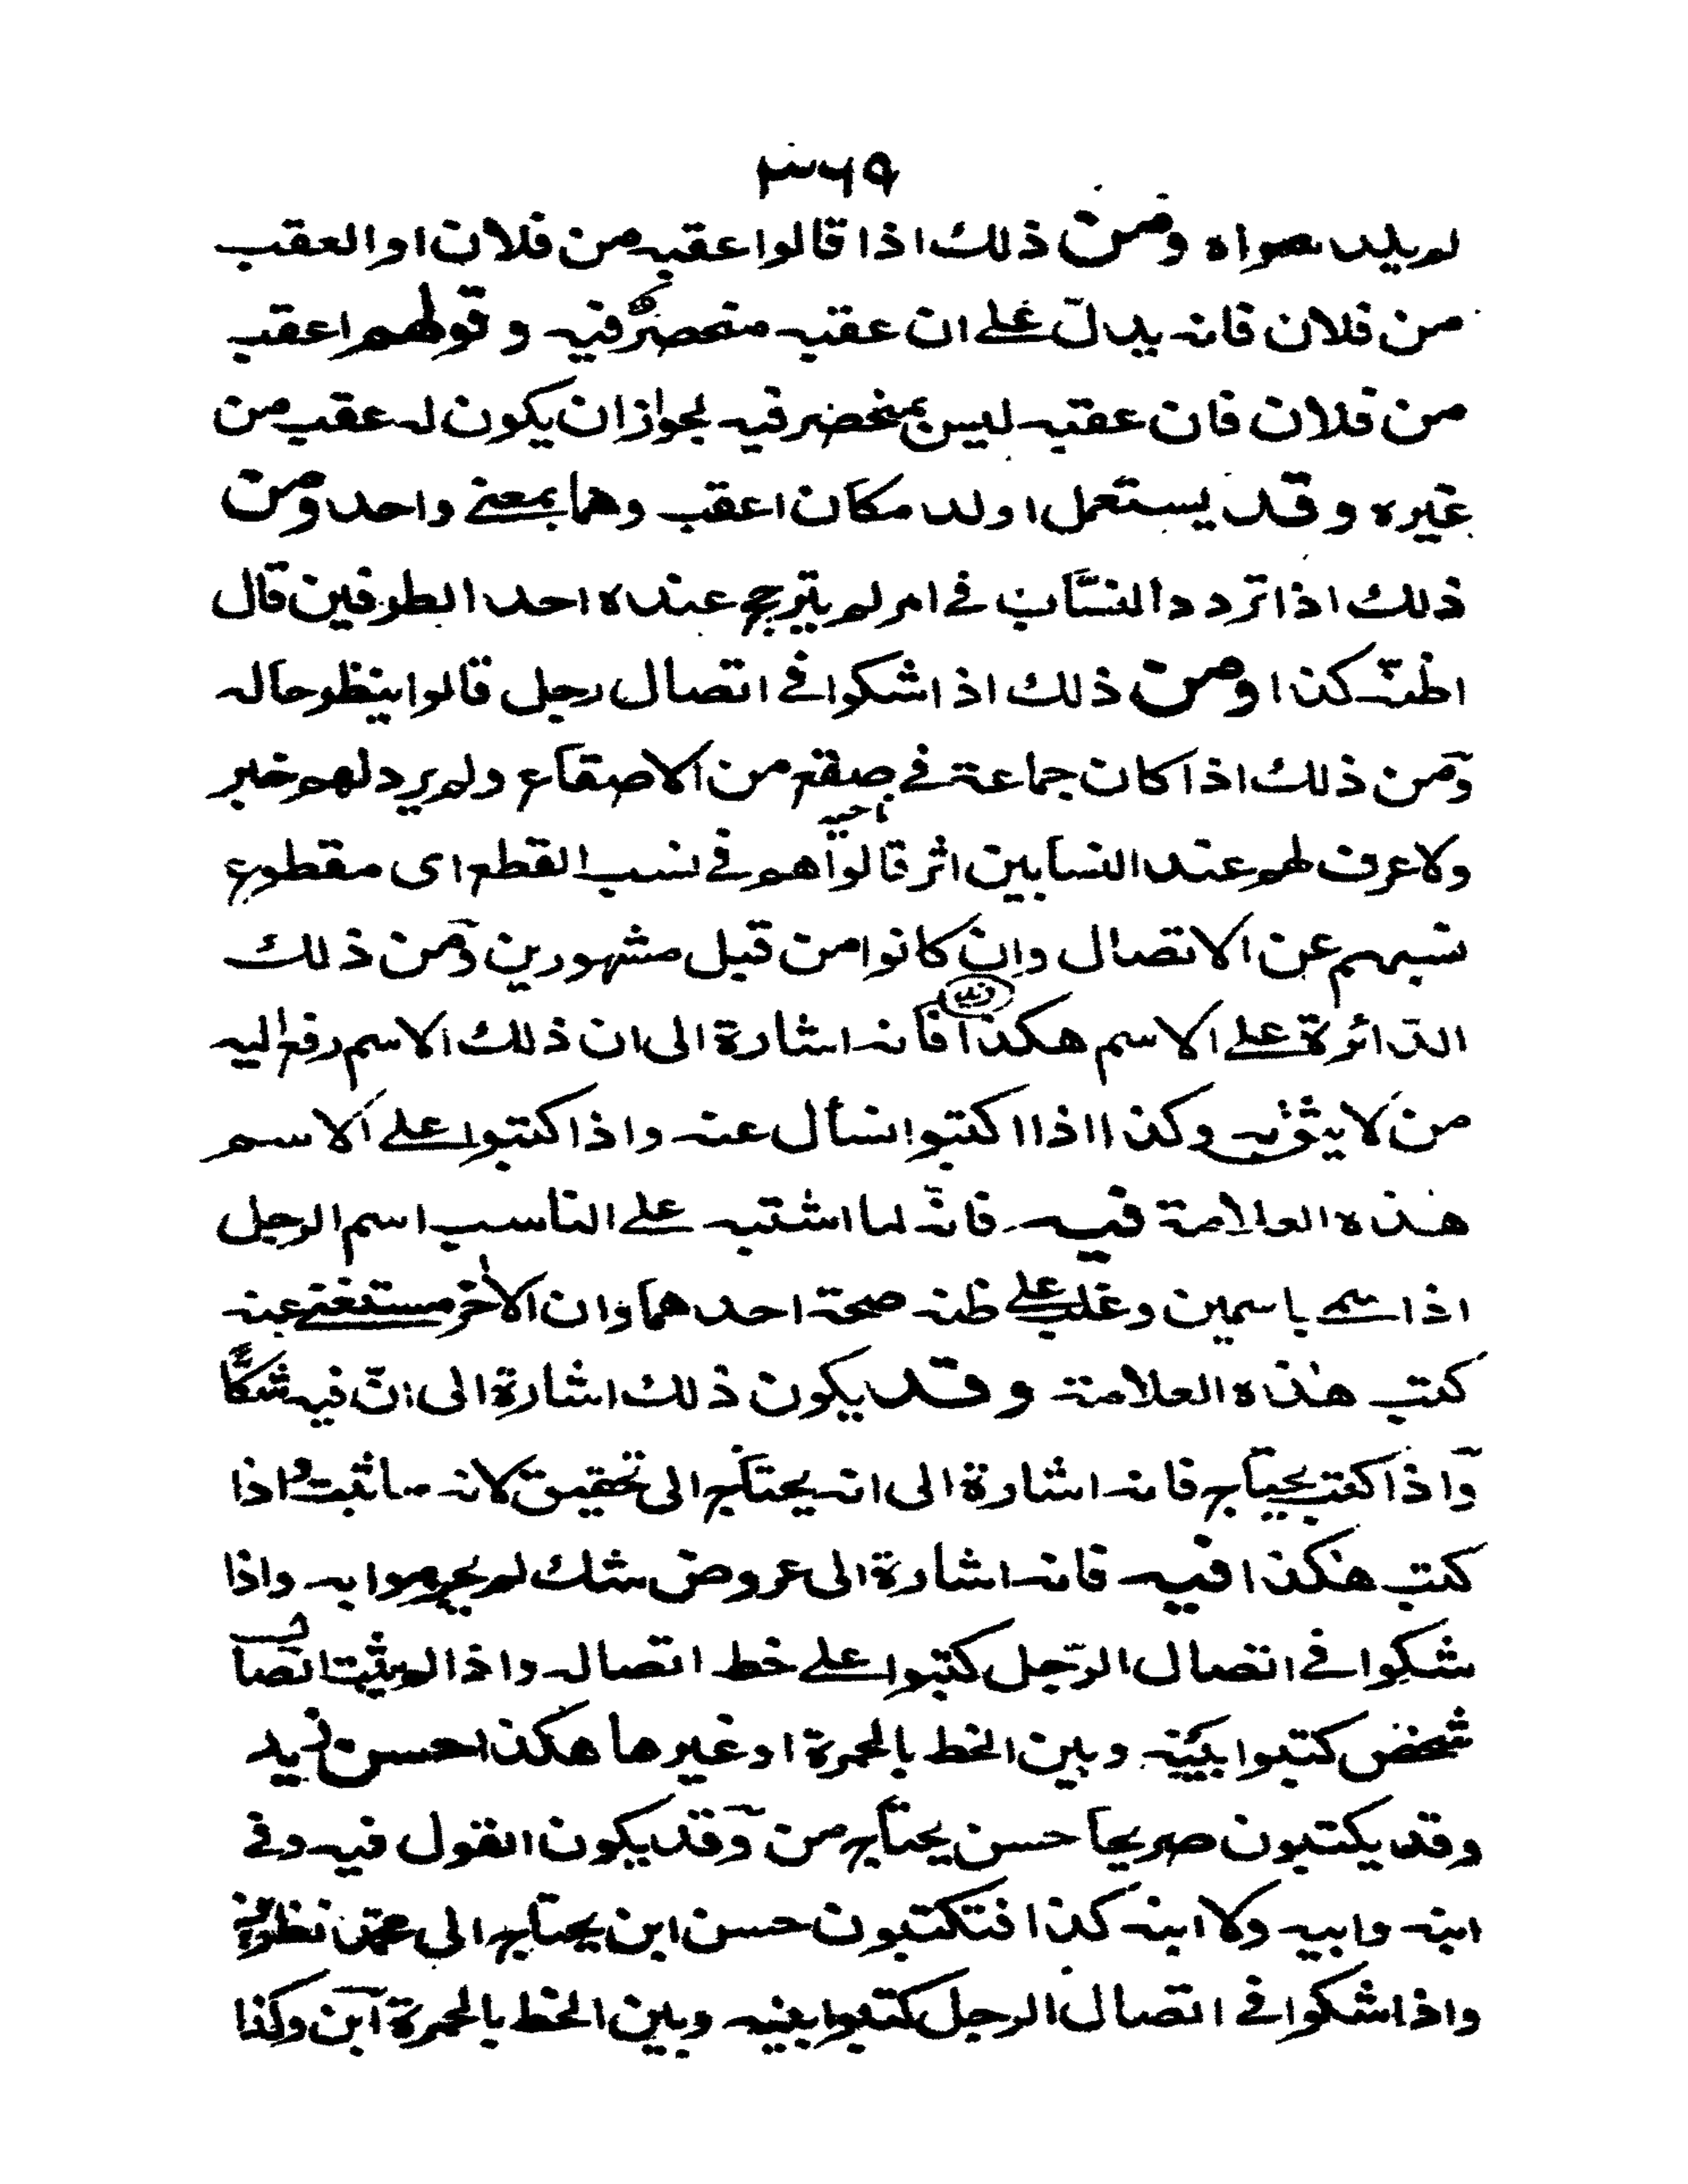 ٣٦٩
لم يلد سواه ومن ذلك اذا قالوا عقبه من فلان او العقب
من فلان فانه يدلّ على ان عقبه منحصرٌ فيه و قولهم اعقب
من فلان فان عقبه ليس بمنحصر فيه لجواز ان يكون له عقب من
غيره و قد يستعمل اولد مكان اعقب وهما بمعنى واحد ومن
ذلك اذا تردد النسّاب في امر لم يترجح عنده احد الطرفين قال
اظنّ كذا ومن ذلك اذا شكوا في اتصال رجل قالوا ينظر حاله
ومن ذلك اذا كان جماعة في صقع من الاصقاع ولم يرد لهم خبر
ولا عرف لهم عند النسابين اثر قالوا هم في نسب القطع اى مقطوع
نسبهم عن الاتصال وان كانوا من قبل مشهورين ومن ذلك
الدائرة على الاسم هكذا زيد فانه اشارة الى ان ذلك الاسم رفع اليه
من لا يثق به وكذا اذا كتبوا نسأل عنه واذا كتبوا على الاسم
هذه العلامة فيه فانّه لما اشتبه على الناسب اسم الرجل
اذا سمى باسمين وغلب على ظنه صحة احدهما وان الآخر مستغنى عنه
كتب هذه العلامة و قد يكون ذلك اشارة الى انّ فيه شكًّا
واذا كتب يحتاج فانه اشارة الى انه يحتاج الى تحقيق لانه ما ثبت واذا
كتب هكذا فيه فانه اشارة الى عروض شك لم يجزموا به واذا
شكوا في اتصال الرّجل كتبوا على خط اتصاله واذا لم يثبت اتصال
شخص كتبوا بينه وبين الخط بالحمرة او غيرها هكذا حسن زيد
وقد يكتبون صريحا حسن يحتاج من وقد يكون القول فيه وفي
ابنه وابيه ولا ابنه كذا فتكتبون حسن ابن يحتاج الى محمد نظر
واذا شكوا في اتصال الرجل كتبوا بينه وبين الخط بالحمرة ابن وكذا